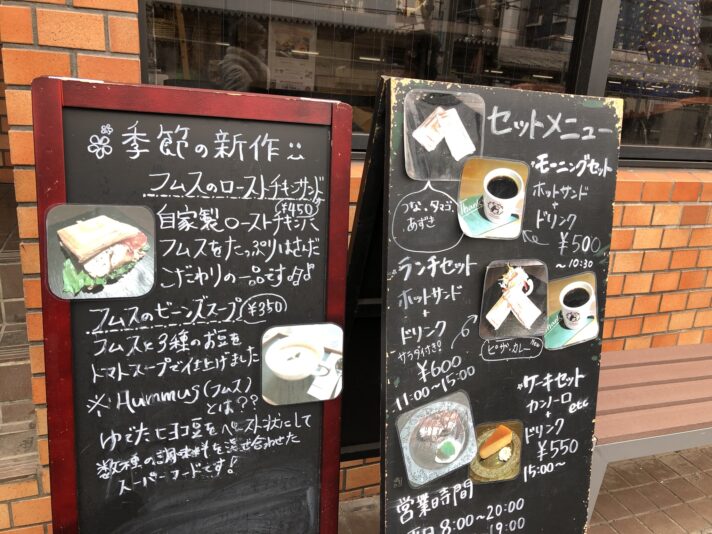 季節の新作
フムスのローストチキンサンド
¥450
自家製ローストチキンに
フムスをたっぷりはさんだ
こだわりの一品です
フムスのビーンズスープ ¥350
フムスと3種のお豆を
トマトスープで仕上げました
※Hummus(フムス)
とは??
ゆでたヒヨコ豆をペースト状にして
数種の調味料を混ぜ合わせた
スーパーフードです!
セットメニュー
モーニングセット
ホットサンド
+
ドリンク
¥500
~10:30
ツナ、タマゴ、
あずき
ランチセット
ホットサンド
+
ドリンク
サラダ付き!
¥600
11:00~15:00
ピザ・カレー
ケーキセット
カンノーロ
etc
+
ドリンク
¥550
15:00~
営業時間
8:00~20:00
19:00